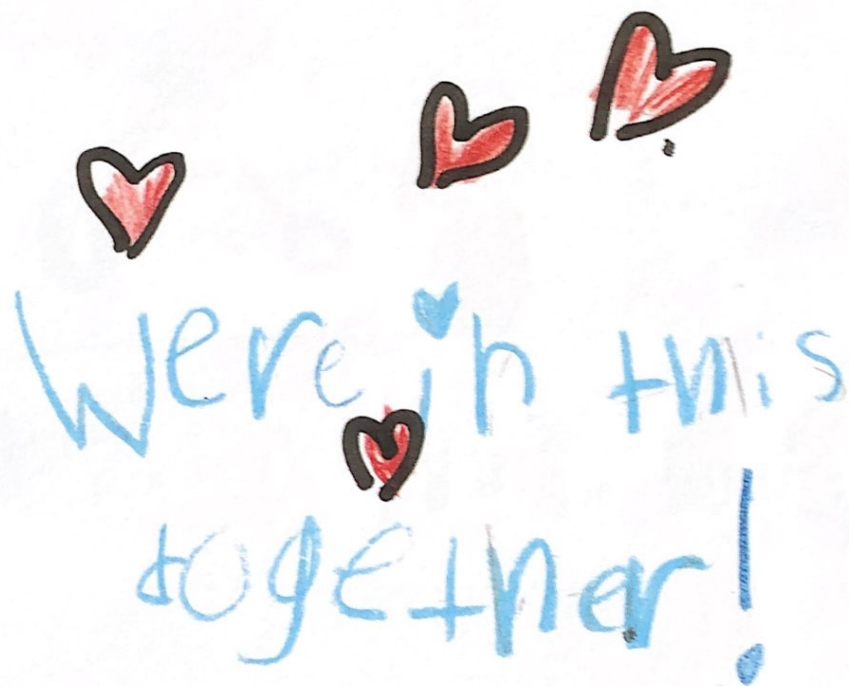 Were in this
together!